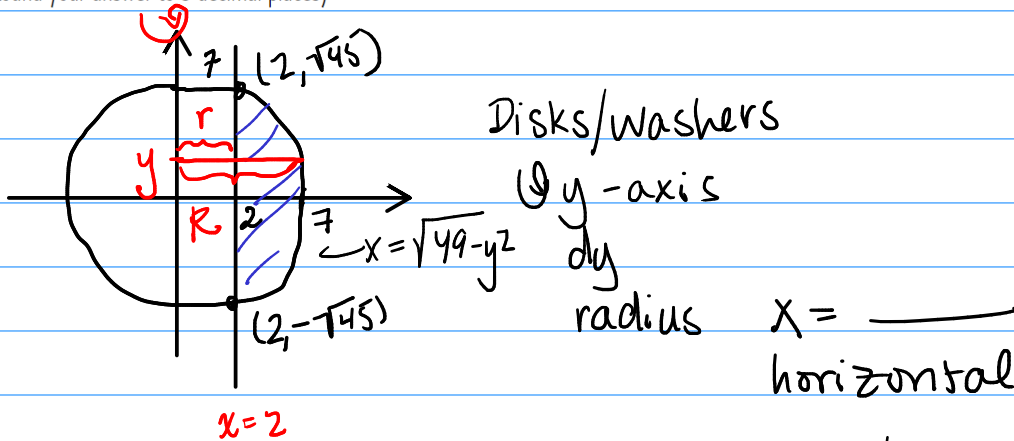 7
(2, √45)
r
y
R
2
7
x = √49-y²
(2, -√45)
x = 2
Disks/washers
y-axis
dy
radius x =
horizontal